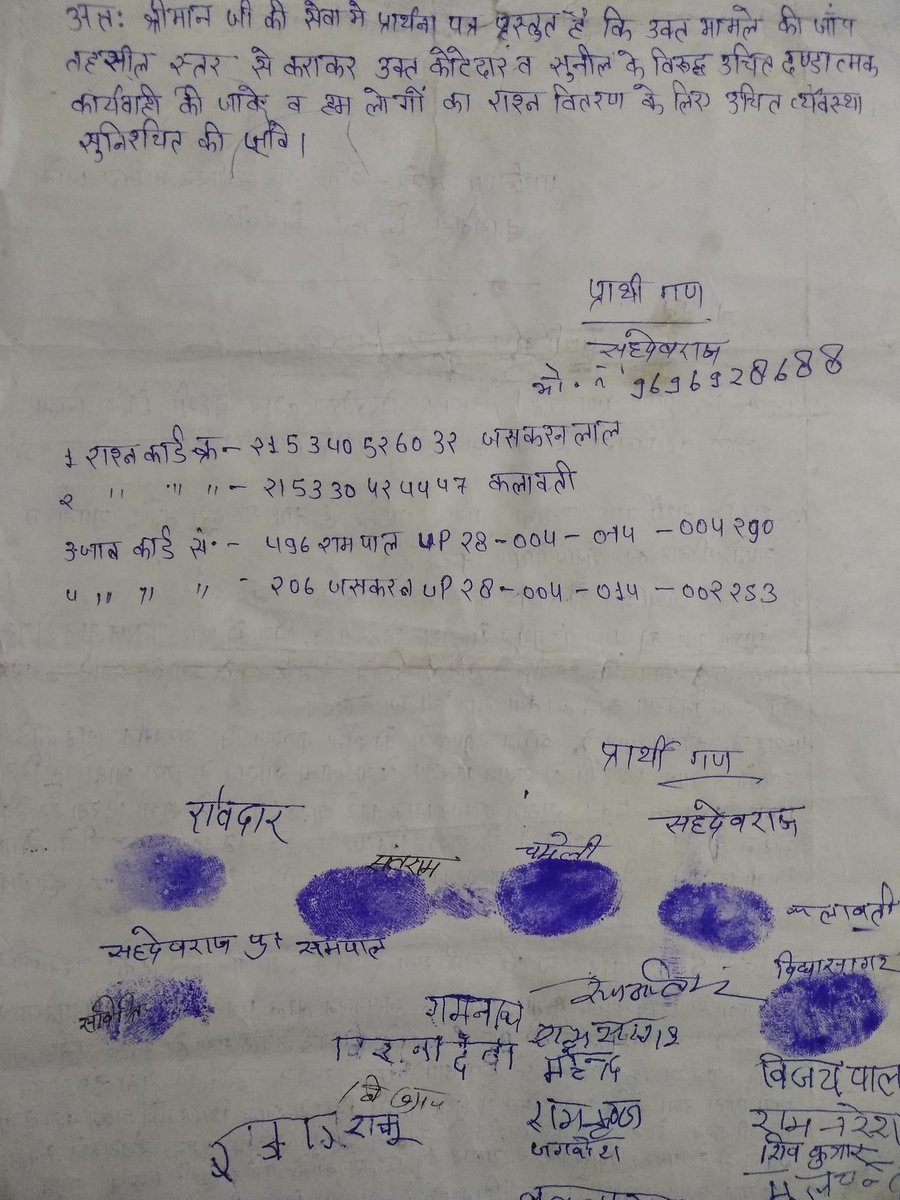 अतः श्रीमान जी की सेवा मे प्रार्थना पत्र प्रस्तुत है कि उक्त मामले की जाँच
तहसील स्तर से कराकर उक्त कोटेदार व सुनील के विरूद्ध उचित दण्डात्मक
कार्यवाही की जावे व हम लोगों का राशन वितरण के लिए उचित व्यवस्था
सुनिश्चित की जावे।
प्रार्थी गण
सहदेवराज
मो. नं 9696928688
1 राशन कार्ड क्र - २15340526032 जसकरन लाल
२ " " " - २153304२4447 कलावती
3 जाब कार्ड सं. - 496 रामपाल UP २8-004-014-004290
4 " " " - २06 जसकरन UP २8-004-014-00२२53
प्रार्थी गण
सहदेवराज
संतराम चमेली
कलावती
सहदेवराज पु रामपाल
विद्यासागर
सावित्री
रामनाथ
देवी महेन्द्र
विजय पाल
राजू
राम नरेश
शिव कुमार